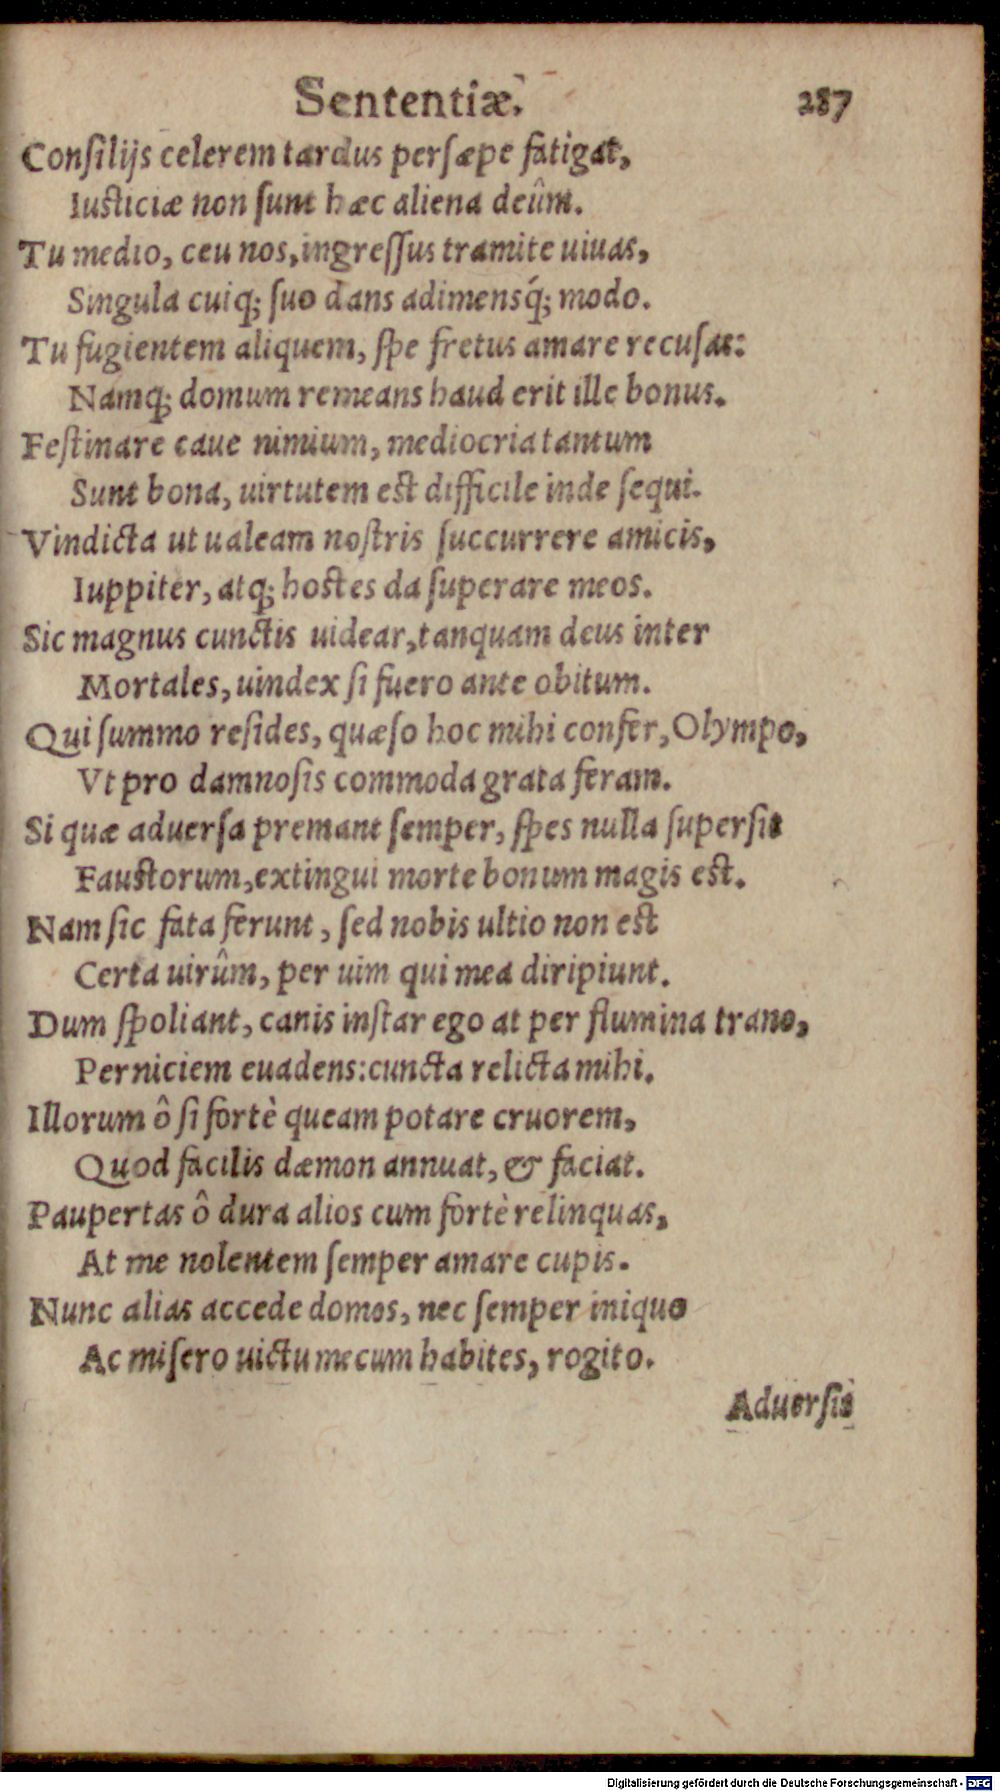 Sententiæ. 287
Conſilijs celerem tardus perſæpe fatigat,
Iusticiæ non ſunt hæc aliena deûm.
Tu medio, ceu nos, ingreſſus tramite uiuas,
Singula cuiq; ſuo dans adimensq́; modo.
Tu fugientem aliquem, ſpe fretus amare recuſas:
Namq; domum remeans haud erit ille bonus.
Feſtinare caue nimium, mediocria tantum
Sunt bona, uirtutem est difficile inde ſequi.
Vindicta ut ualeam noſtris ſuccurrere amicis,
Iuppiter, atq; hostes da ſuperare meos.
Sic magnus cunctis uidear, tanquam deus inter
Mortales, uindex ſi fuero ante obitum.
Qui ſummo reſides, quæſo hoc mihi confer, Olympo,
Vt pro damnoſis commoda grata feram.
Si quæ aduerſa premant ſemper, ſpes nulla ſuperſit
Faustorum, extingui morte bonum magis est.
Nam ſic fata ferunt, ſed nobis ultio non est
Certa uirûm, per uim qui mea diripiunt.
Dum ſpoliant, canis inſtar ego at per flumina trano,
Perniciem euadens: cuncta relicta mihi.
Illorum ô ſi fortè queam potare cruorem,
Quod facilis dæmon annuat, & faciat.
Paupertas ô dura alios cum fortè relinquas,
At me nolentem ſemper amare cupis.
Nunc alias accede domos, nec ſemper iniquo
Ac miſero uictu mecum habites, rogito.
Aduerſis
Digitalisierung gefördert durch die Deutsche Forschungsgemeinschaft - DFG